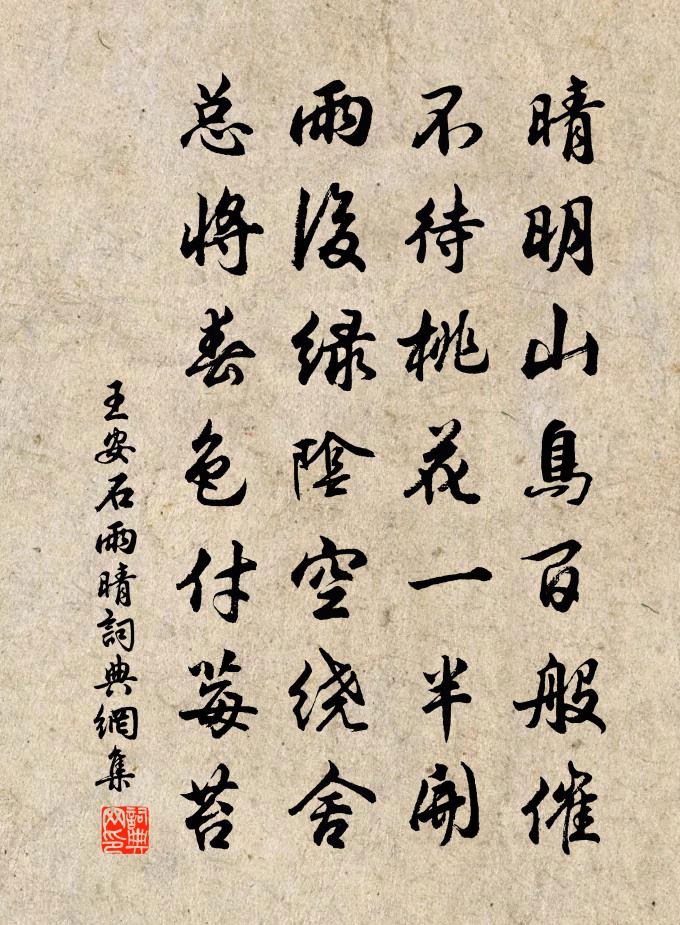 晴明山鳥百般催
不待桃花一半開
雨後緑陰空繞舍
总將春色付莓苔
王安石雨晴詞典網集
詞典网印